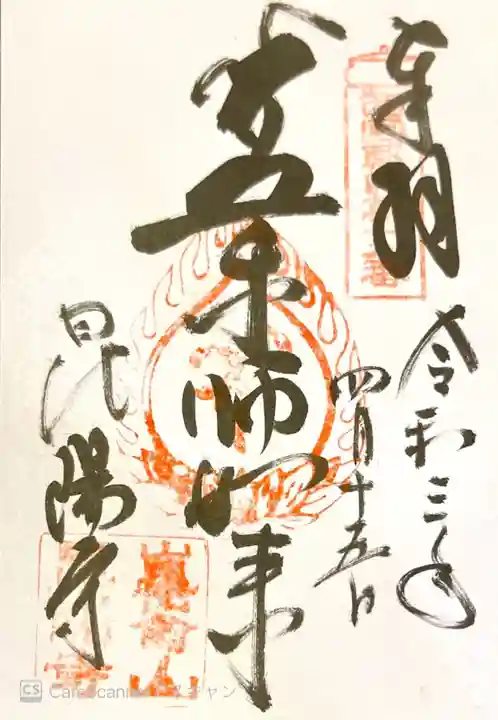 奉拝
令和三年
四月十五日
薬師如来
昆陽寺
CS CamScannerでスキャン